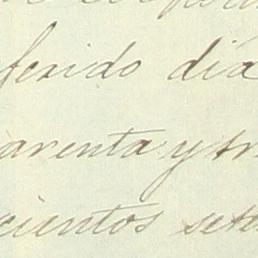 ferido día
arenta y tr
cientos sete